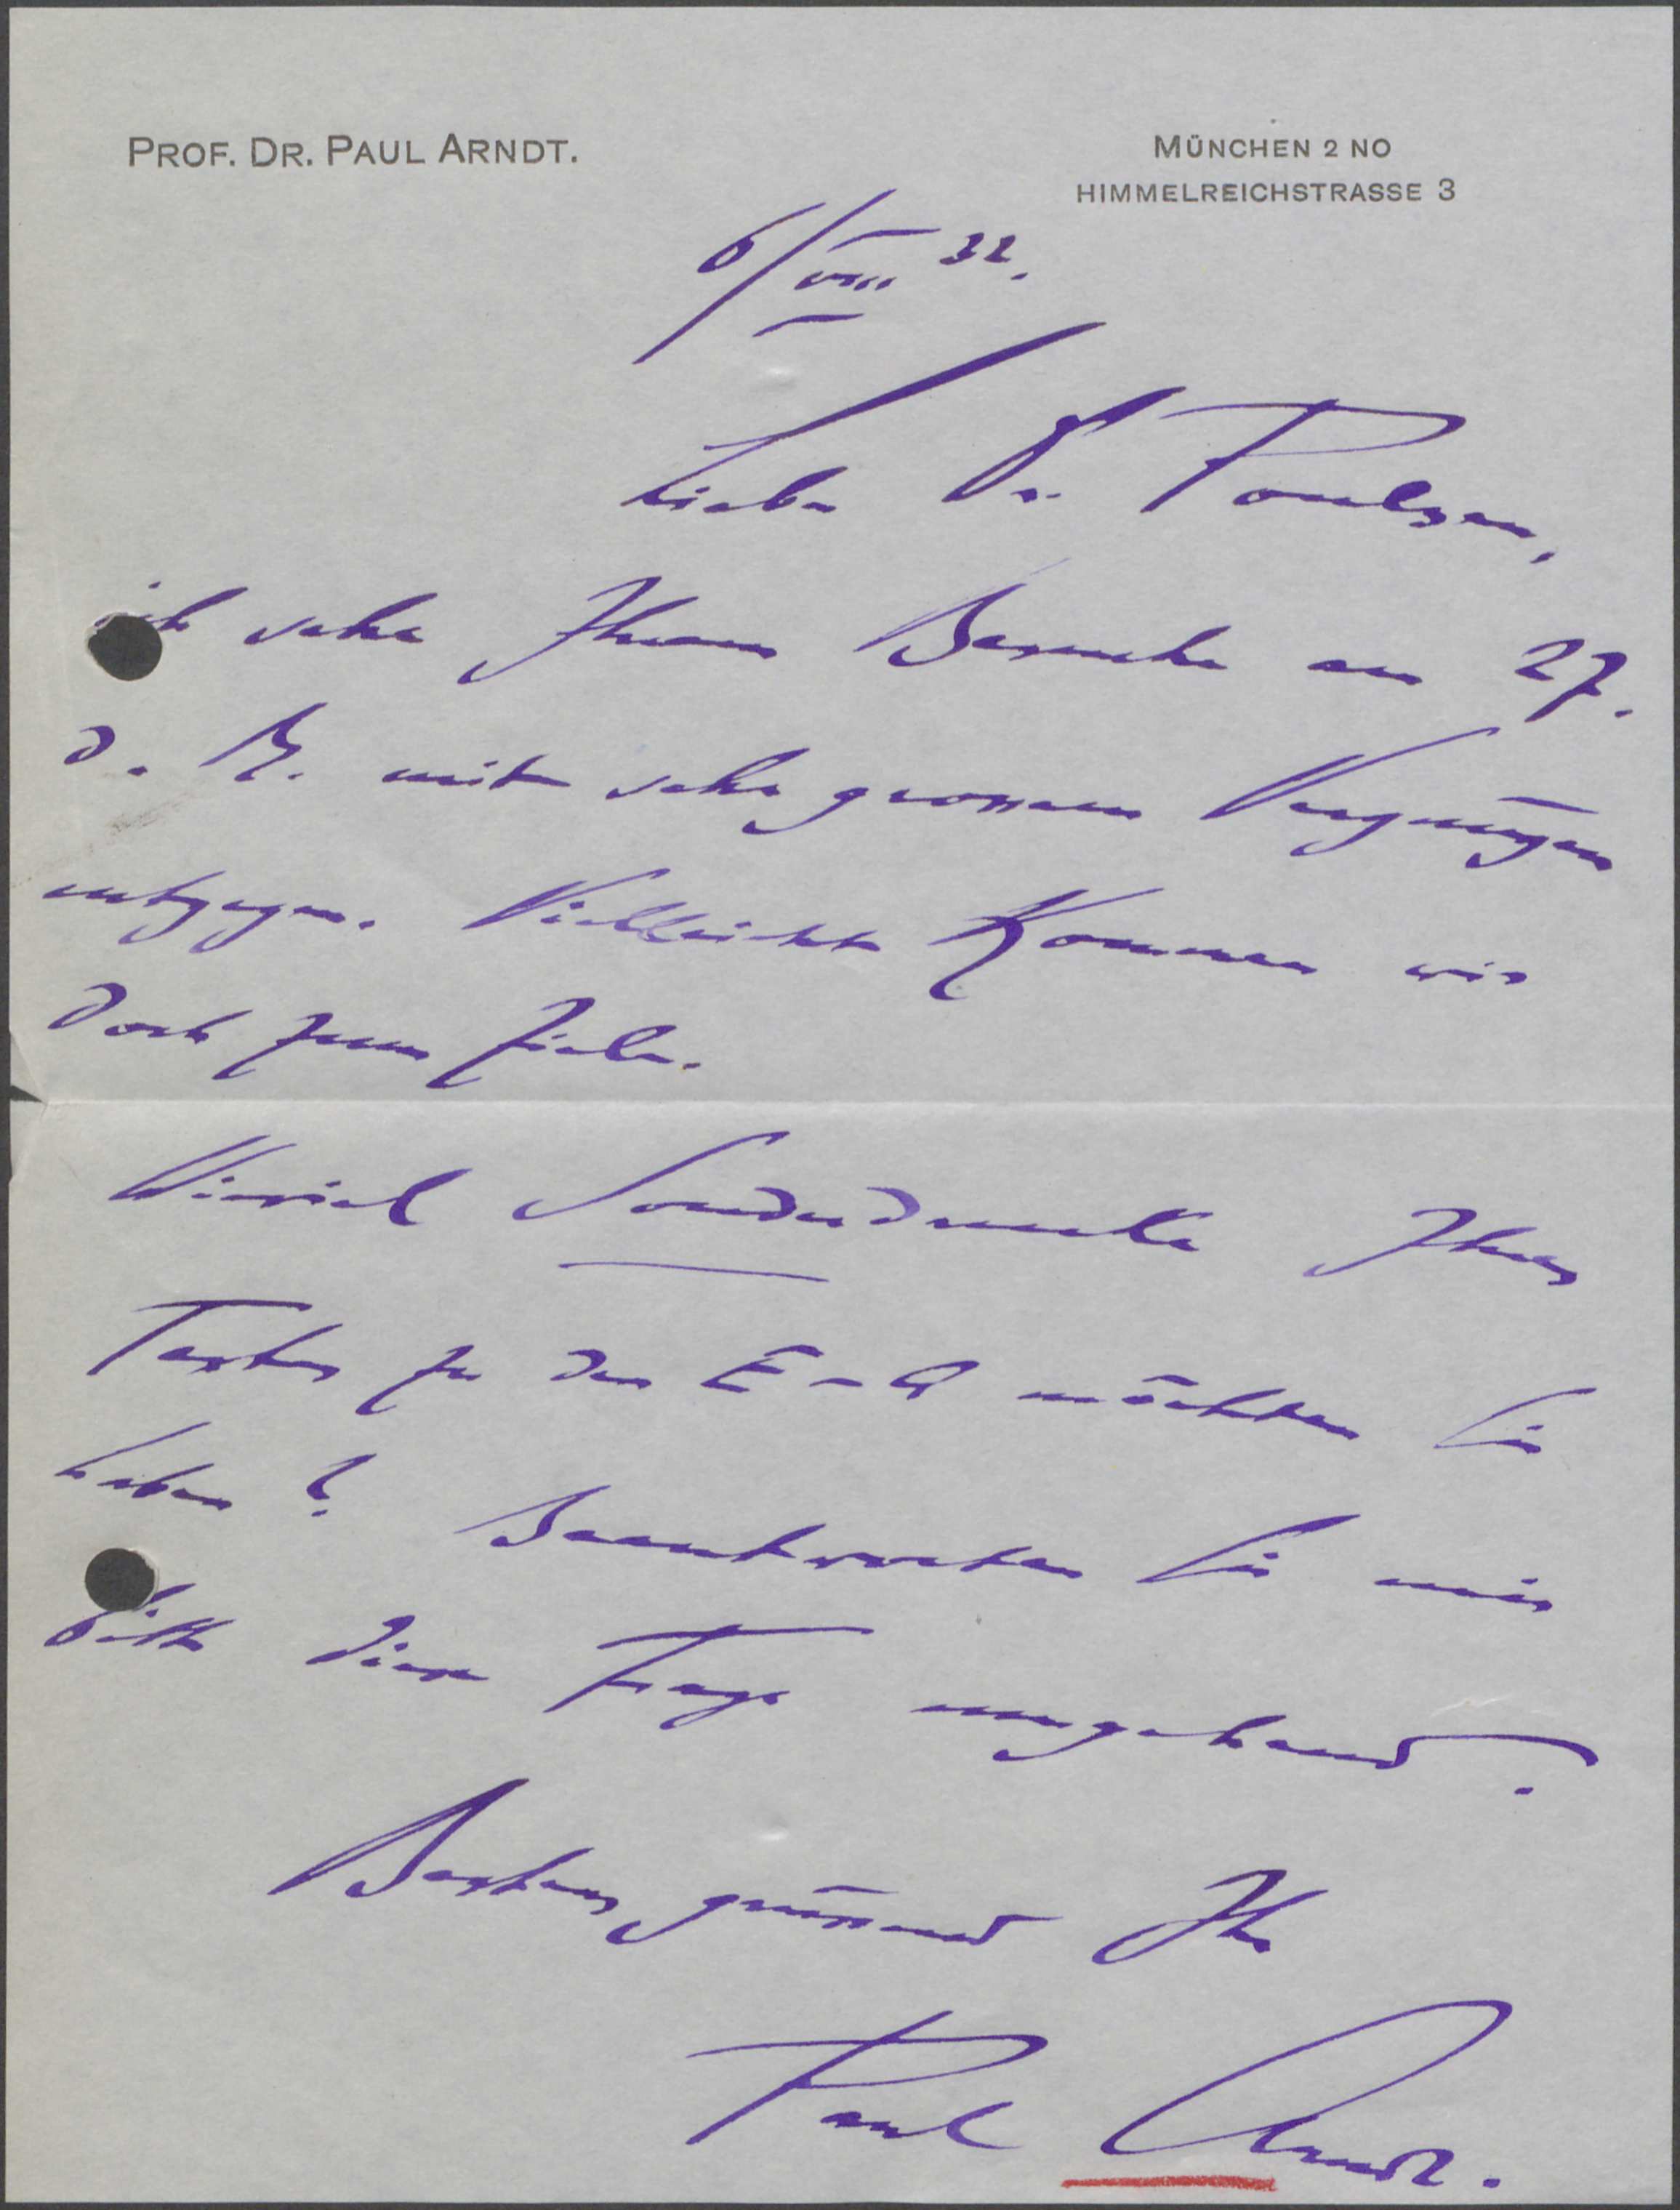 PROF. DR. PAUL ARNDT.
MÜNCHEN 2 NO
HIMMELREICHSTRASSE 3
6/VIII 32.
Lieber Dr. Poulsen,
ich sehe Ihrem Besuche am 27.
d. M. mit sehr grossem Vergnügen
entgegen. Vielleicht kommen wir
doch zum Ziele.
Wieviel Sonderdrucke Ihres
Textes zu den E-A möchten Sie
haben? Beantworten Sie mir
bitte diese Frage umgehend.
Bestens grüssend Ihr
Paul Arndt.